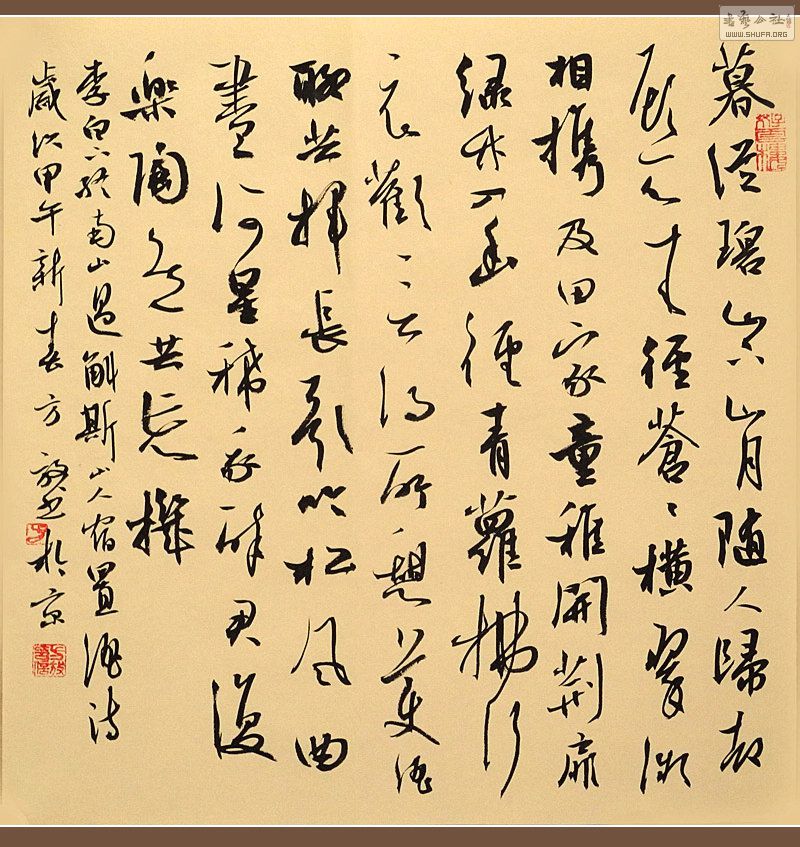 暮從碧山下山月隨人歸却
顧所來徑蒼蒼橫翠微
相攜及田家童稚開荊扉
綠竹入幽徑青蘿拂行
衣歡言得所憩美酒
聊共揮長歌吟松風曲
盡河星稀我醉君復
樂陶然共忘機
李白下終南山過斛斯山人宿置酒詩
歲次甲午新春方放書於京
书艺公社
WWW.SHUFA.ORG